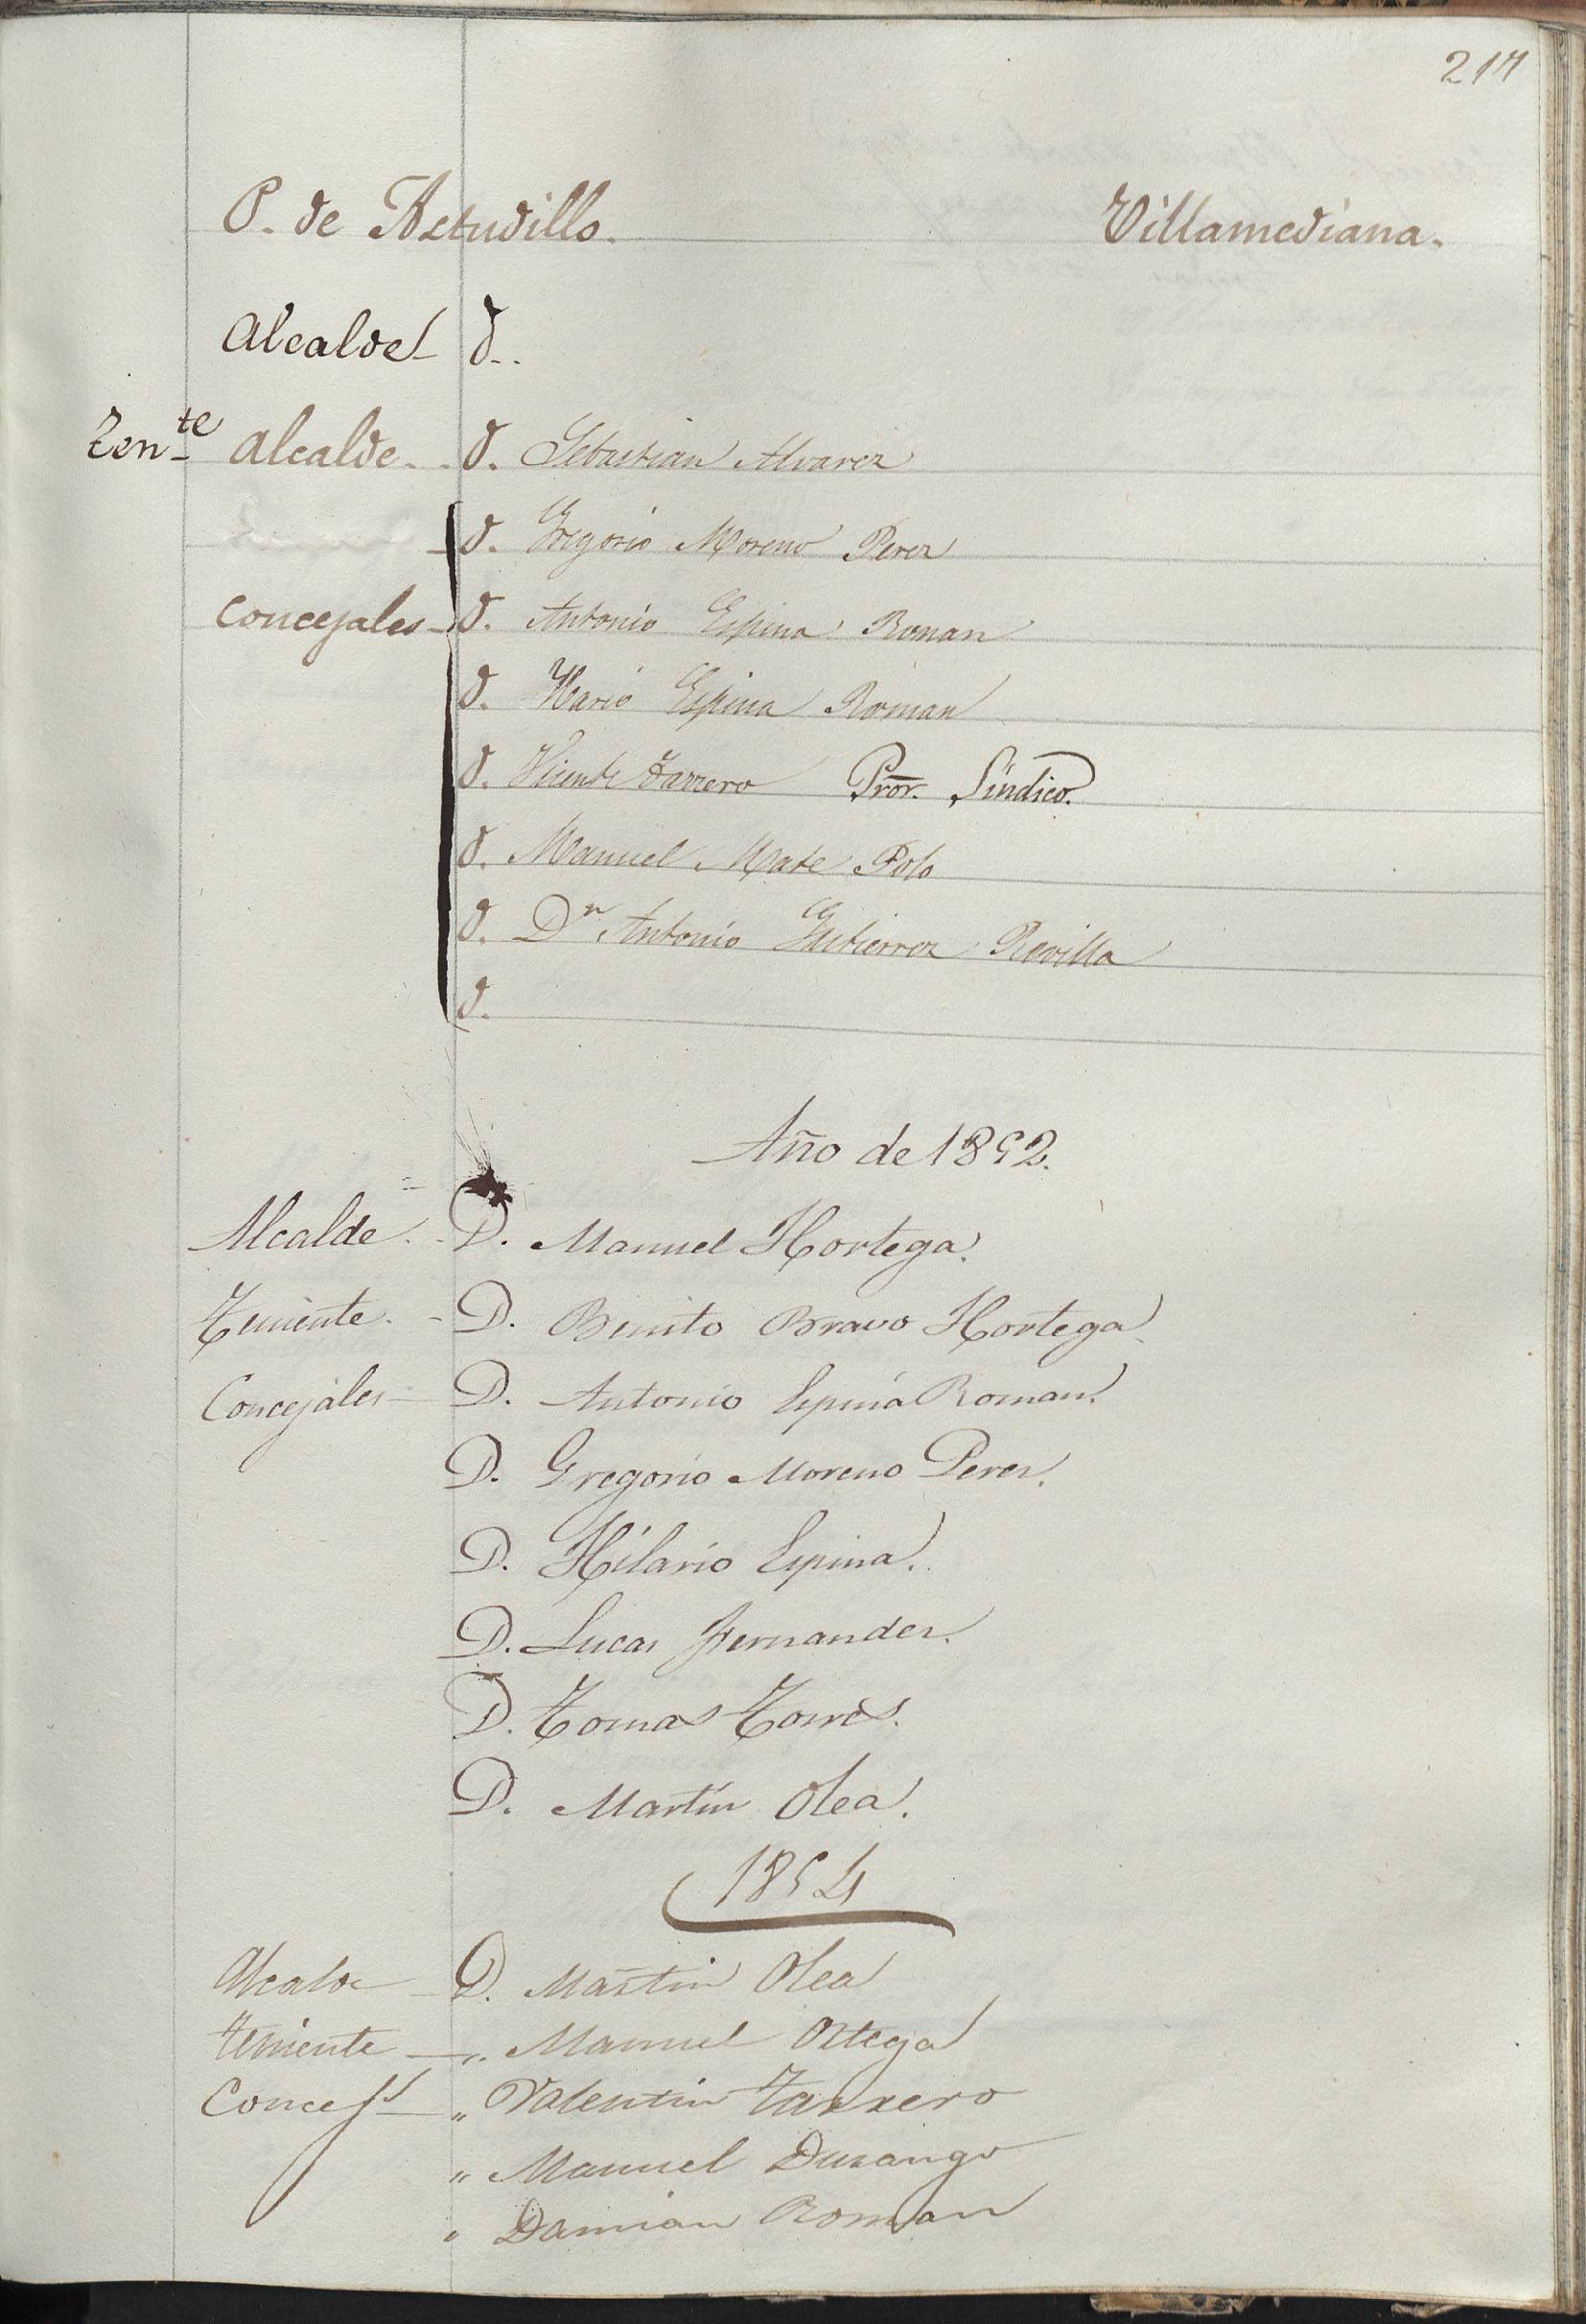 217
P. de Astudillo. Villamediana.
Alcalde D..
Tente Alcalde. D. Sebastian Alvarez
D. Gregorio Moreno Perez
Concejales D. Antonio Espina Roman
D. Ilario Espina Roman
D. Vicente Tarrero Pror. Síndico.
D. Manuel Mate Polo
D. Dn Antonio Gutierrez Revilla
D.
Año de 1852.
Alcalde. D. Manuel Hortega.
Teniente. D. Benito Bravo Hortega.
Concejales D. Antonio Espina Roman.
D. Gregorio Moreno Perez.
D. Hilario Espina.
D. Lucas Fernandez.
D. Tomas Torres.
D. Martin Olea.
1854
Alcalde D. Martin Olea
teniente " Manuel Ortega
Concejs " Valentin Tarrero
" Manuel Durango
" Damian Roman